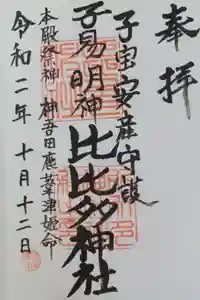 奉拝
子宝安産守護
子易明神 比比多神社
本殿祭神 神吾田鹿葦津姫命
令和二年 十月十二日